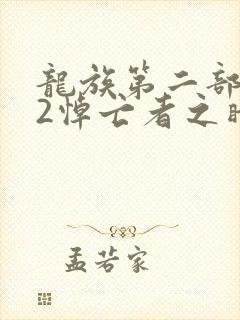 龍族第二部
2悼亡者之
孟若家